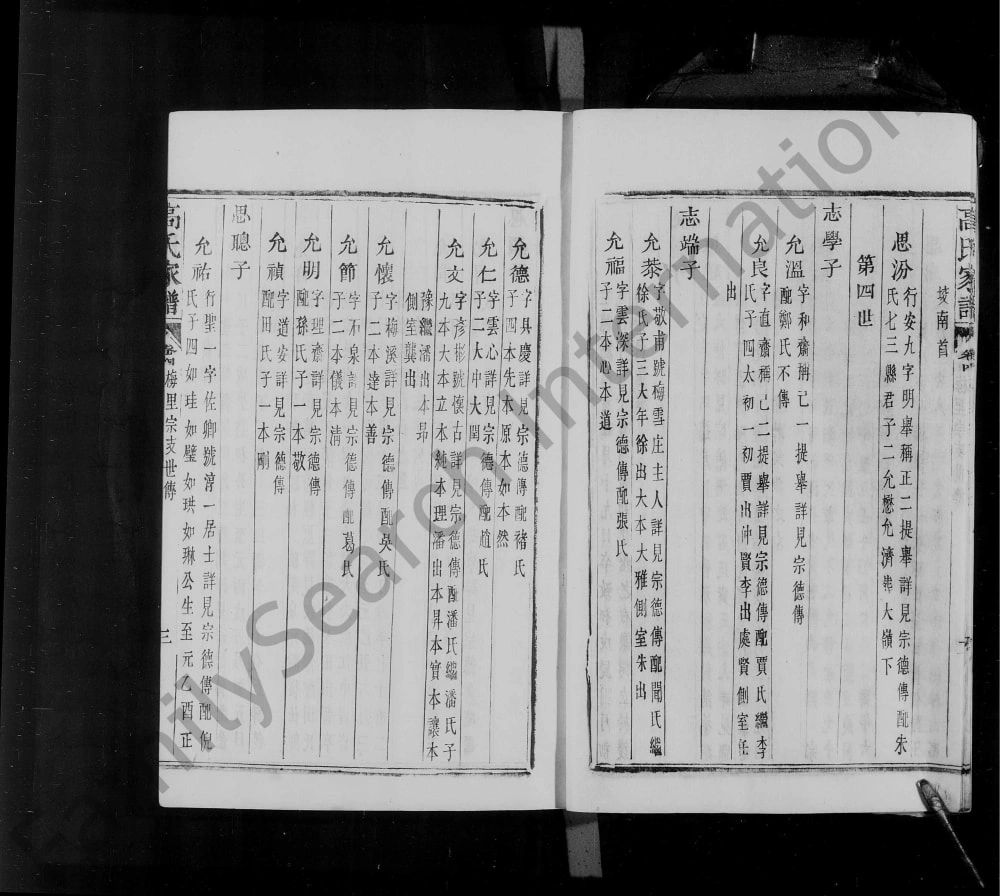 高氏家譜
坡南首
思汾 行安九字明舉稱正二提舉詳見宗德傳配朱
氏七三縣君子二允懋允濟葬大嶺下
第四世
志學子
允溫 字和齋稱己一提舉詳見宗德傳
配鄭氏不傳
允良 字直齋稱己二提舉詳見宗德傳配賈氏繼李
氏子四太初一初賈出仲賢李出處賢側室任
出
志端子
允恭 字敬甫號梅雪庄主人詳見宗德傳配聞氏繼
徐氏子三大年徐出大本大雅側室朱出
允福 字雲深詳見宗德傳配張氏
子二本心本道
允德 字具慶詳見宗德傳配褚氏
子四本先本原本如本然
允仁 字雲心詳見宗德傳配趙氏
子二大中大閏
允文 字彥彬號懷古詳見宗德傳配潘氏繼潘氏子
九本大本立本純本理潘出本昇本實本讓本
豫繼潘出本昂
側室龔出
允懷 字梅溪詳見宗德傳配吳氏
子二本達本善
允節 字石泉詳見宗德傳配葛氏
子二本儀本清
允明 字理齋詳見宗德傳
配孫氏子一本敬
允禎 字道安詳見宗德傳
配田氏子一本剛
思聰子
允祐 行聖一字佐卿號淳一居士詳見宗德傳配倪
氏子四如珪如璧如珙如琳公生至元乙酉正
高氏家譜
梅里宗支世傳
三